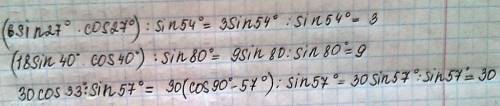 (6sin27° · cos27°) : sin54° = 3sin54° : sin54° = 3
(18sin40° · cos40°) : sin80° = 9sin80 : sin80° = 9
30cos33° : sin57° = 30(cos90° - 57°) : sin57° = 30sin57° : sin57° = 30